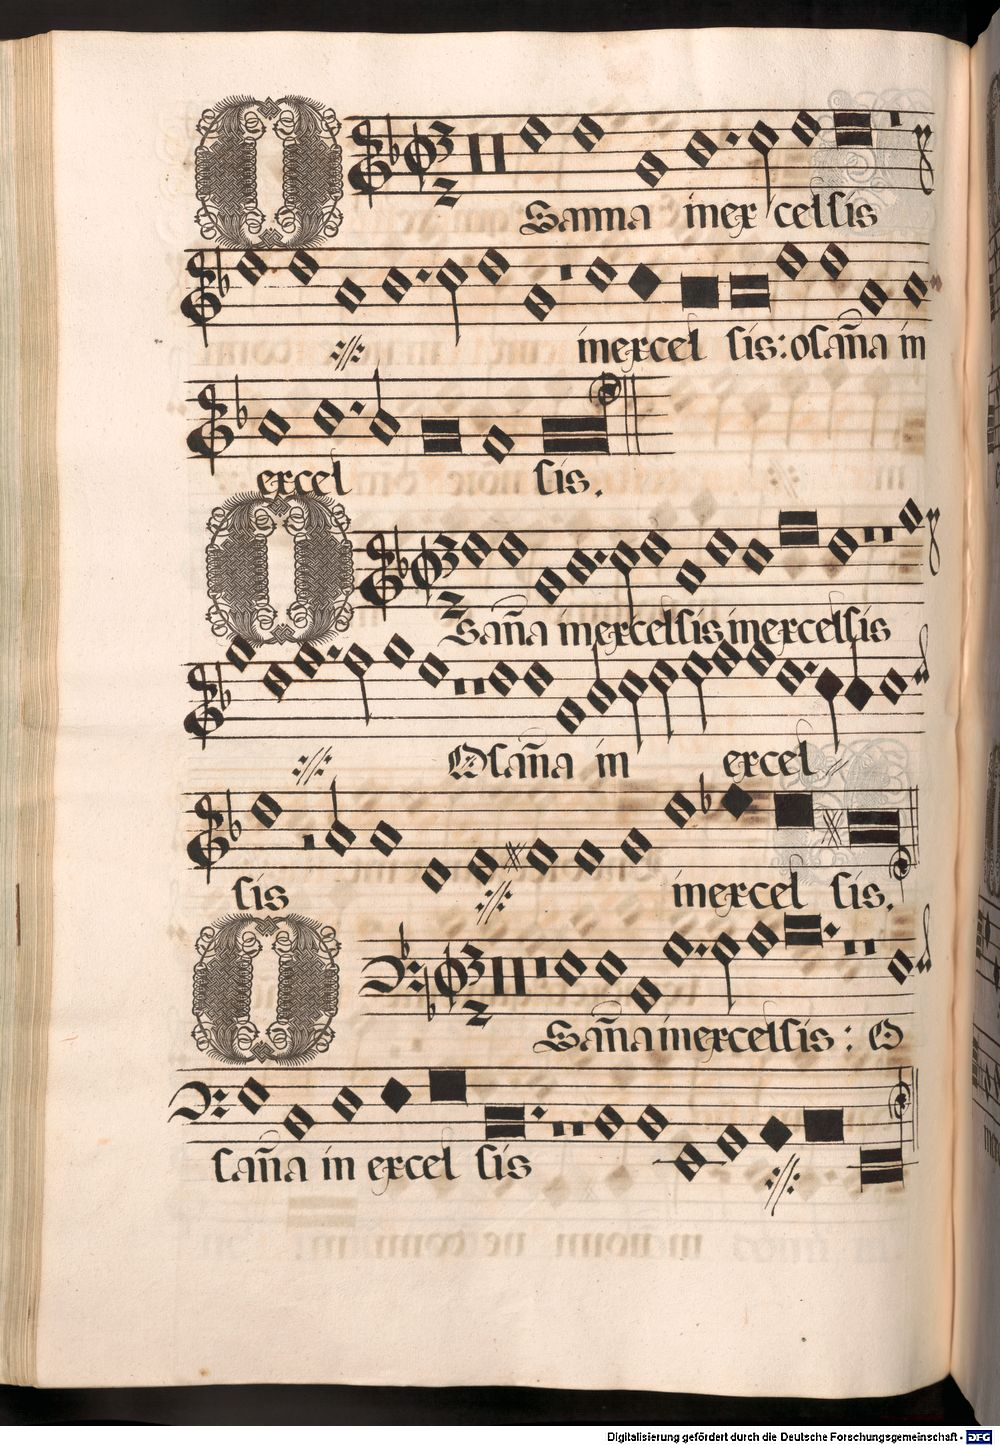 O Sanna in ex celsis
in excel sis: osan̄a in
excel sis.
O San̄a in excelsis in excelsis
Osan̄a in excel
sis in excel sis.
O San̄a in excelsis: O
san̄a in excel sis
Digitalisierung gefördert durch die Deutsche Forschungsgemeinschaft - DFG